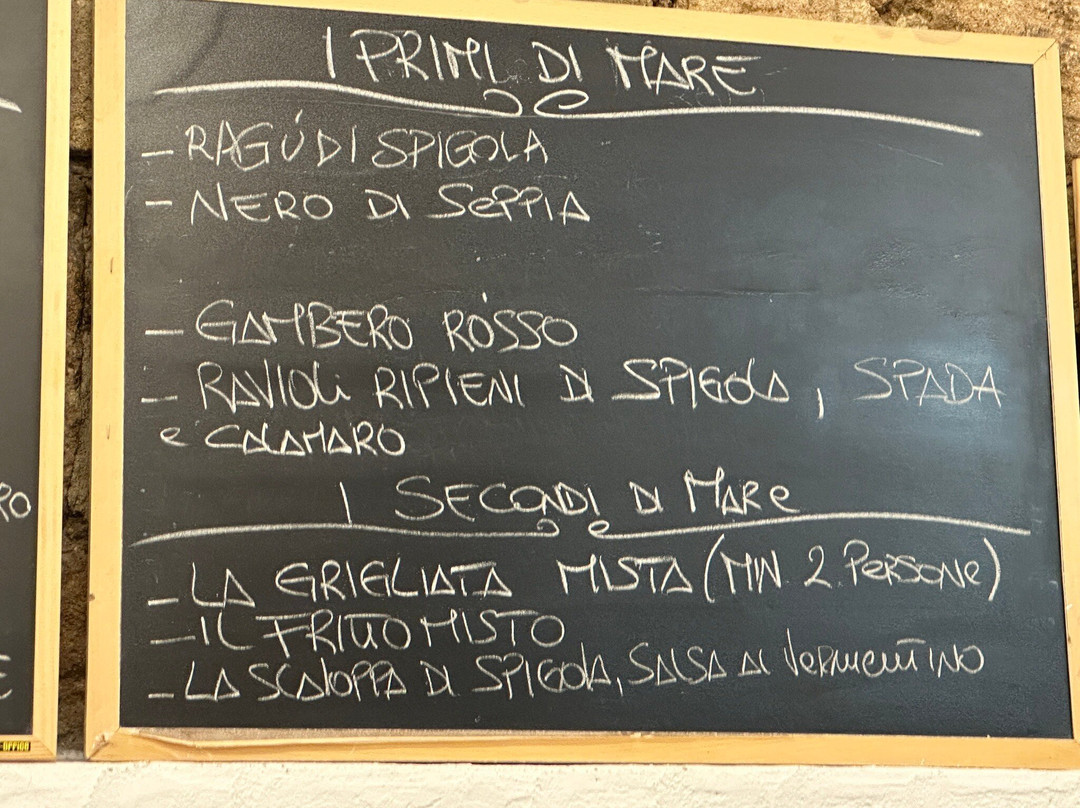 I PRIMI DI MARE
- RAGÚ DI SPIGOLA
- NERO DI SEPPIA
- GAMBERO ROSSO
- RAVIOLI RIPIENI DI SPIGOLA, SPADA
e CALAMARO
I SECONDI DI MARE
- LA GRIGLIATA MISTA (MIN. 2 PERSONE)
- IL FRITTO MISTO
- LA SCALOPPA DI SPIGOLA, SALSA AL VERMENTINO
RO
E